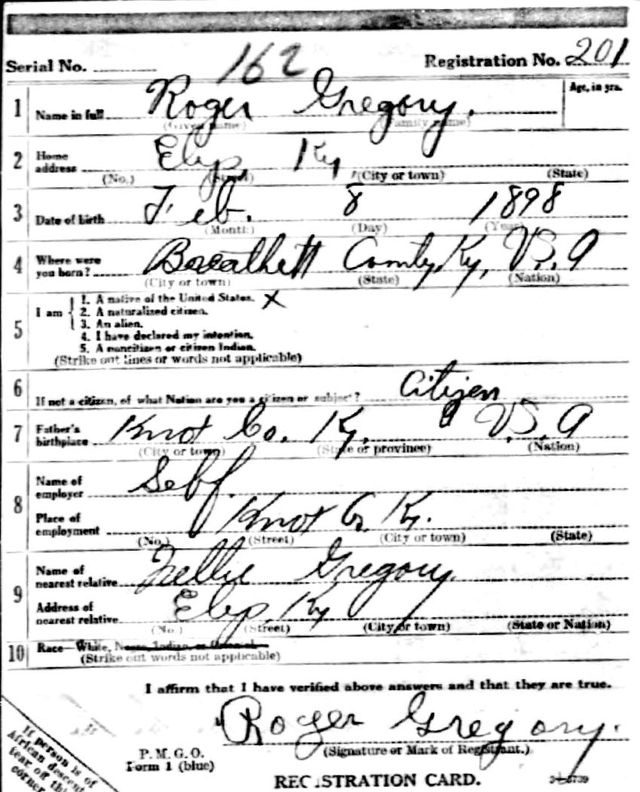 Serial No. 162 Registration No. 201
1 Name in full Roger Gregory. Age, in yrs.
(Given name) (Family name)
2 Home address Ky.
(No.) (Street) (City or town) (State)
3 Date of birth Feb. 8 1898
(Month) (Day) (Year)
4 Where were you born? Breathett County, Ky, U.S.A
(City or town) (State) (Nation)
5 I am
1. A native of the United States. X
2. A naturalized citizen.
3. An alien.
4. I have declared my intention.
5. A noncitizen or citizen Indian.
(Strike out lines or words not applicable)
6 If not a citizen, of what Nation are you a citizen or subject? Citizen
7 Father's birthplace Knot Co. Ky. U.S.A
(City or town) (State or province) (Nation)
8 Name of employer Self
Place of employment Knot Co. Ky.
(No.) (Street) (City or town) (State)
9 Name of nearest relative Nellie Gregory.
Address of nearest relative Ky
(No.) (Street) (City or town) (State or Nation)
10 Race—White, Negro, Indian, or Oriental.
(Strike out words not applicable)
I affirm that I have verified above answers and that they are true.
Roger Gregory.
(Signature or Mark of Registrant.)
P. M. G. O.
Form 1 (blue)
REGISTRATION CARD.
If person is of
African descent
tear off this
corner